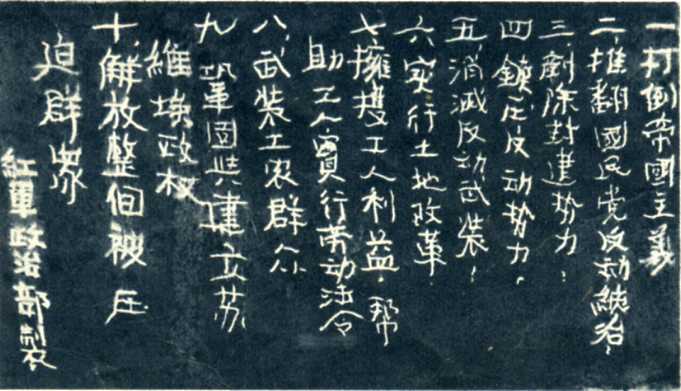 一打倒帝國主義
二、推翻國民党反动統治！
三、剷除封建势力！
四鎮压反动势力！
五、消滅反动武装！
六实行土地改革！
七擁護工人利益。帮
助工人實行劳动法令
八、武装工农群众
九鞏固共建立苏
維埃政权
十、解放整個被压
迫群眾
紅軍政治部製